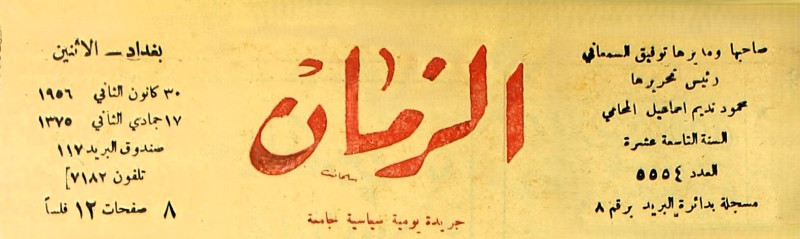 صاحبها ومديرها توفيق السمعاني
رئيس تحريرها
محمود نديم اسماعيل المحامي
السنة التاسعة عشرة
العدد ٥٥٥٤
مسجلة بدائرة البريد برقم ٨
الزمان
جريدة يومية سياسية جامعة
بغداد - الاثنين
٣٠ كانون الثاني ١٩٥٦
١٧ جمادي الثاني ١٣٧٥
صندوق البريد ١١٧
تلفون ٧١٨٢]
٨ صفحات ١٢ فلساً